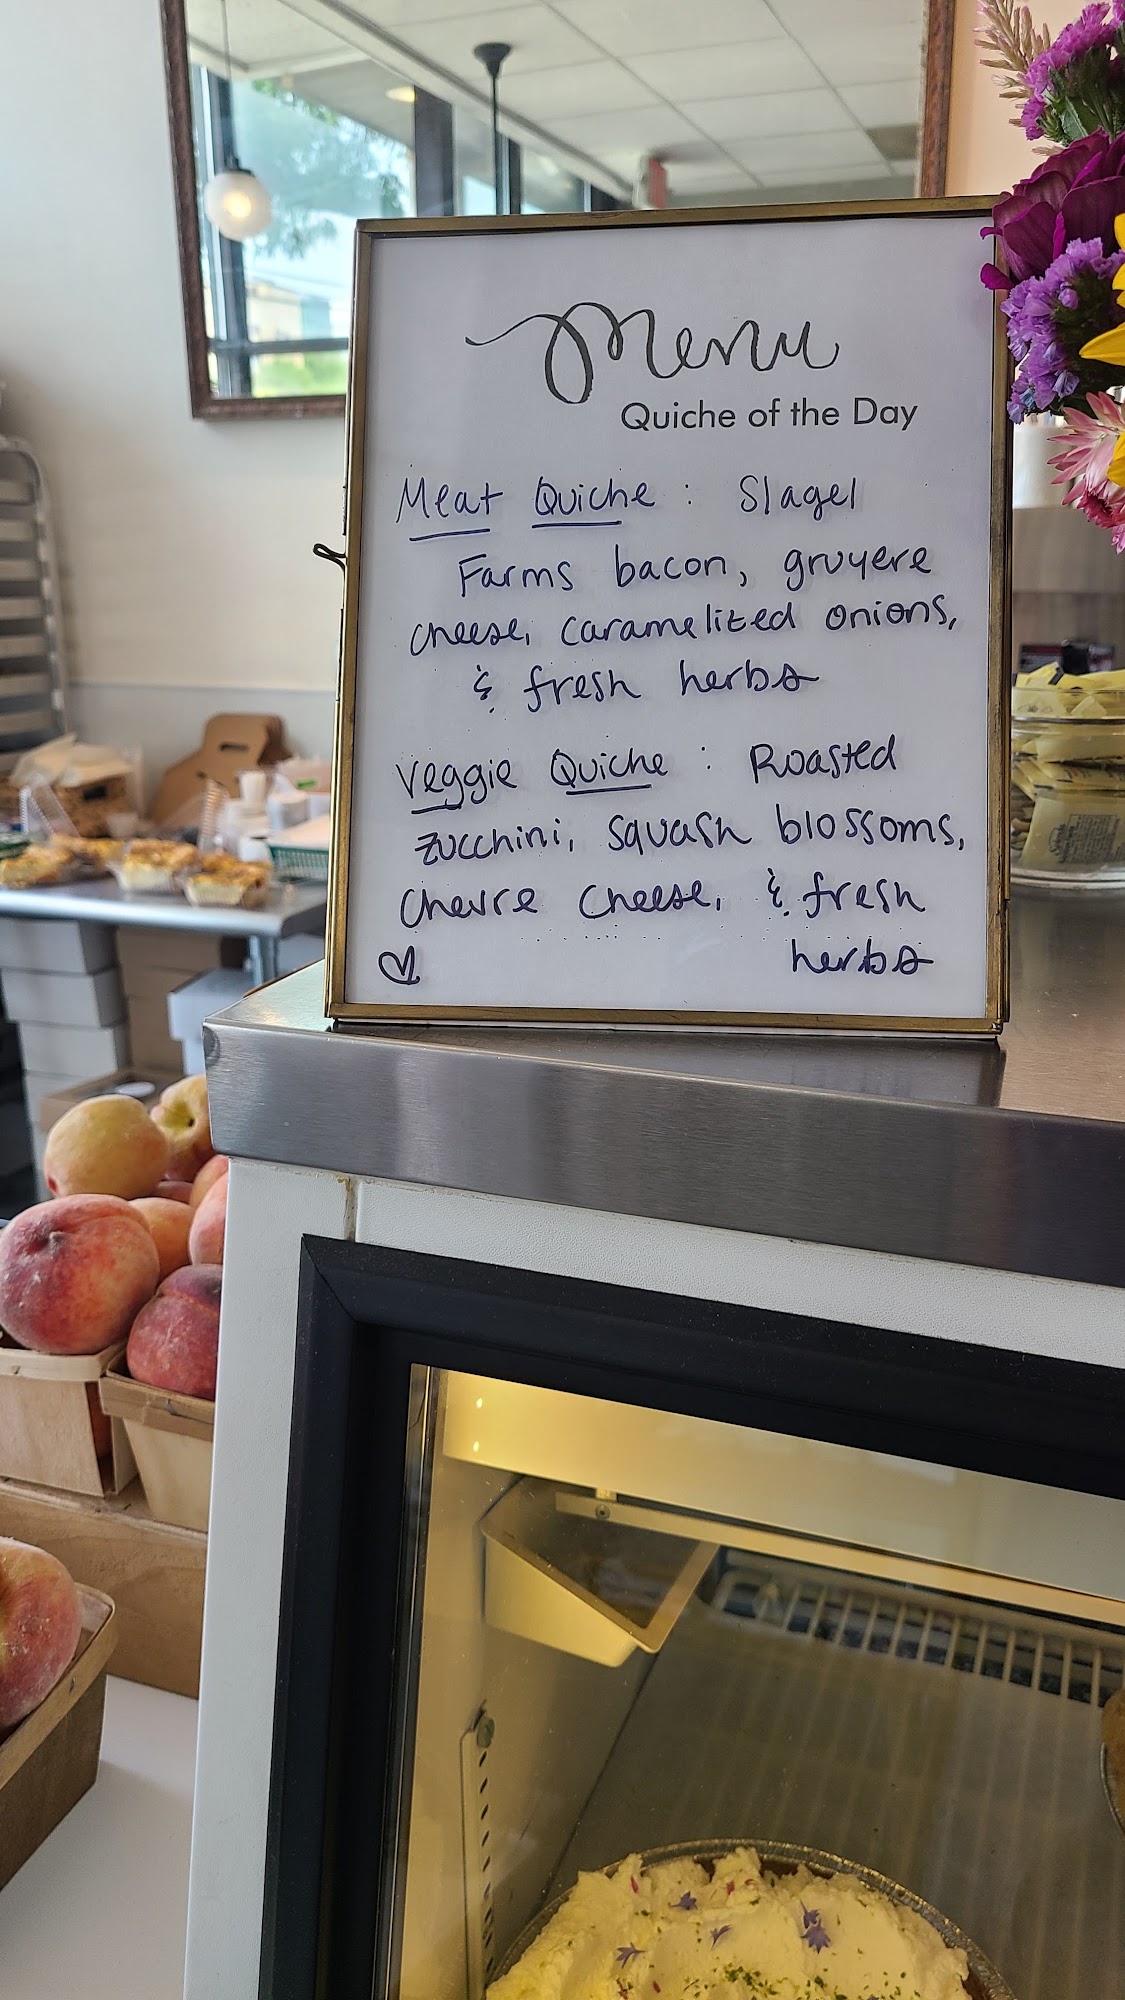 Menu
Quiche of the Day
Meat Quiche : Slagel
Farms bacon, gruyere
cheese, caramelized onions,
& fresh herbs
Veggie Quiche : Roasted
zucchini, squash blossoms,
chevre cheese, & fresh
herbs